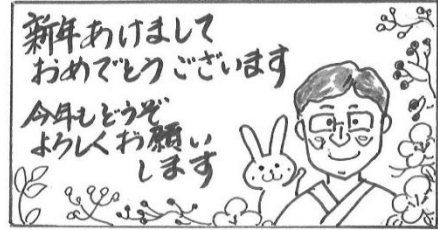 新年あけまして
おめでとうございます
今年もどうぞ
よろしくお願い
します